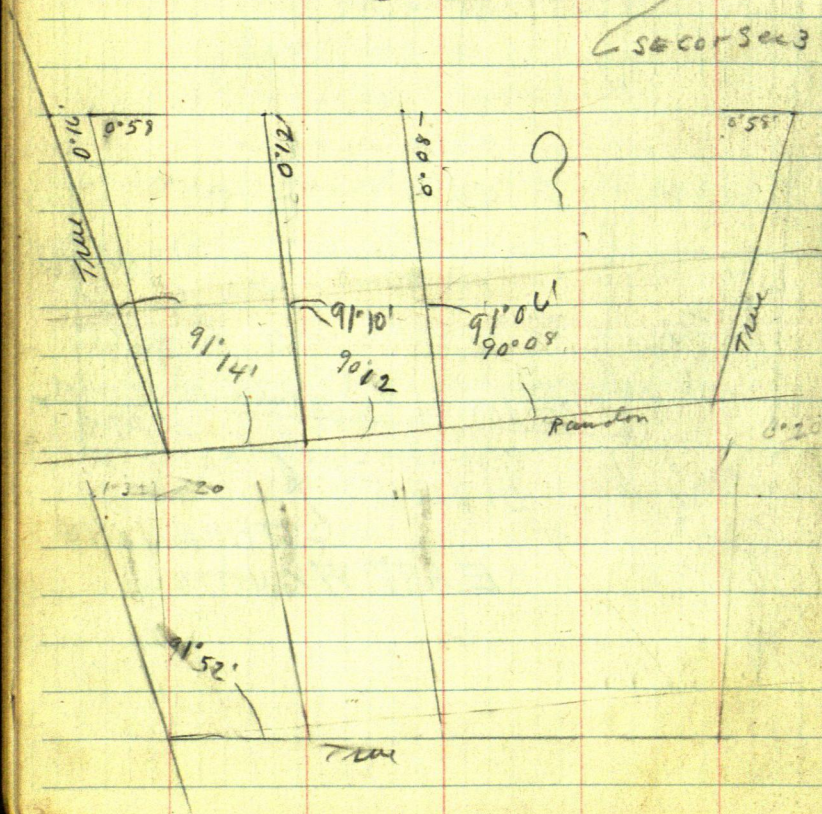 SE Cor Sec 3
0°16'
0°58
0°12'
0°08'
?
0°58'
True
91°10'
91°06'
90°08
91°14'
90°12
True
Random
0°20
20
91°52'
True